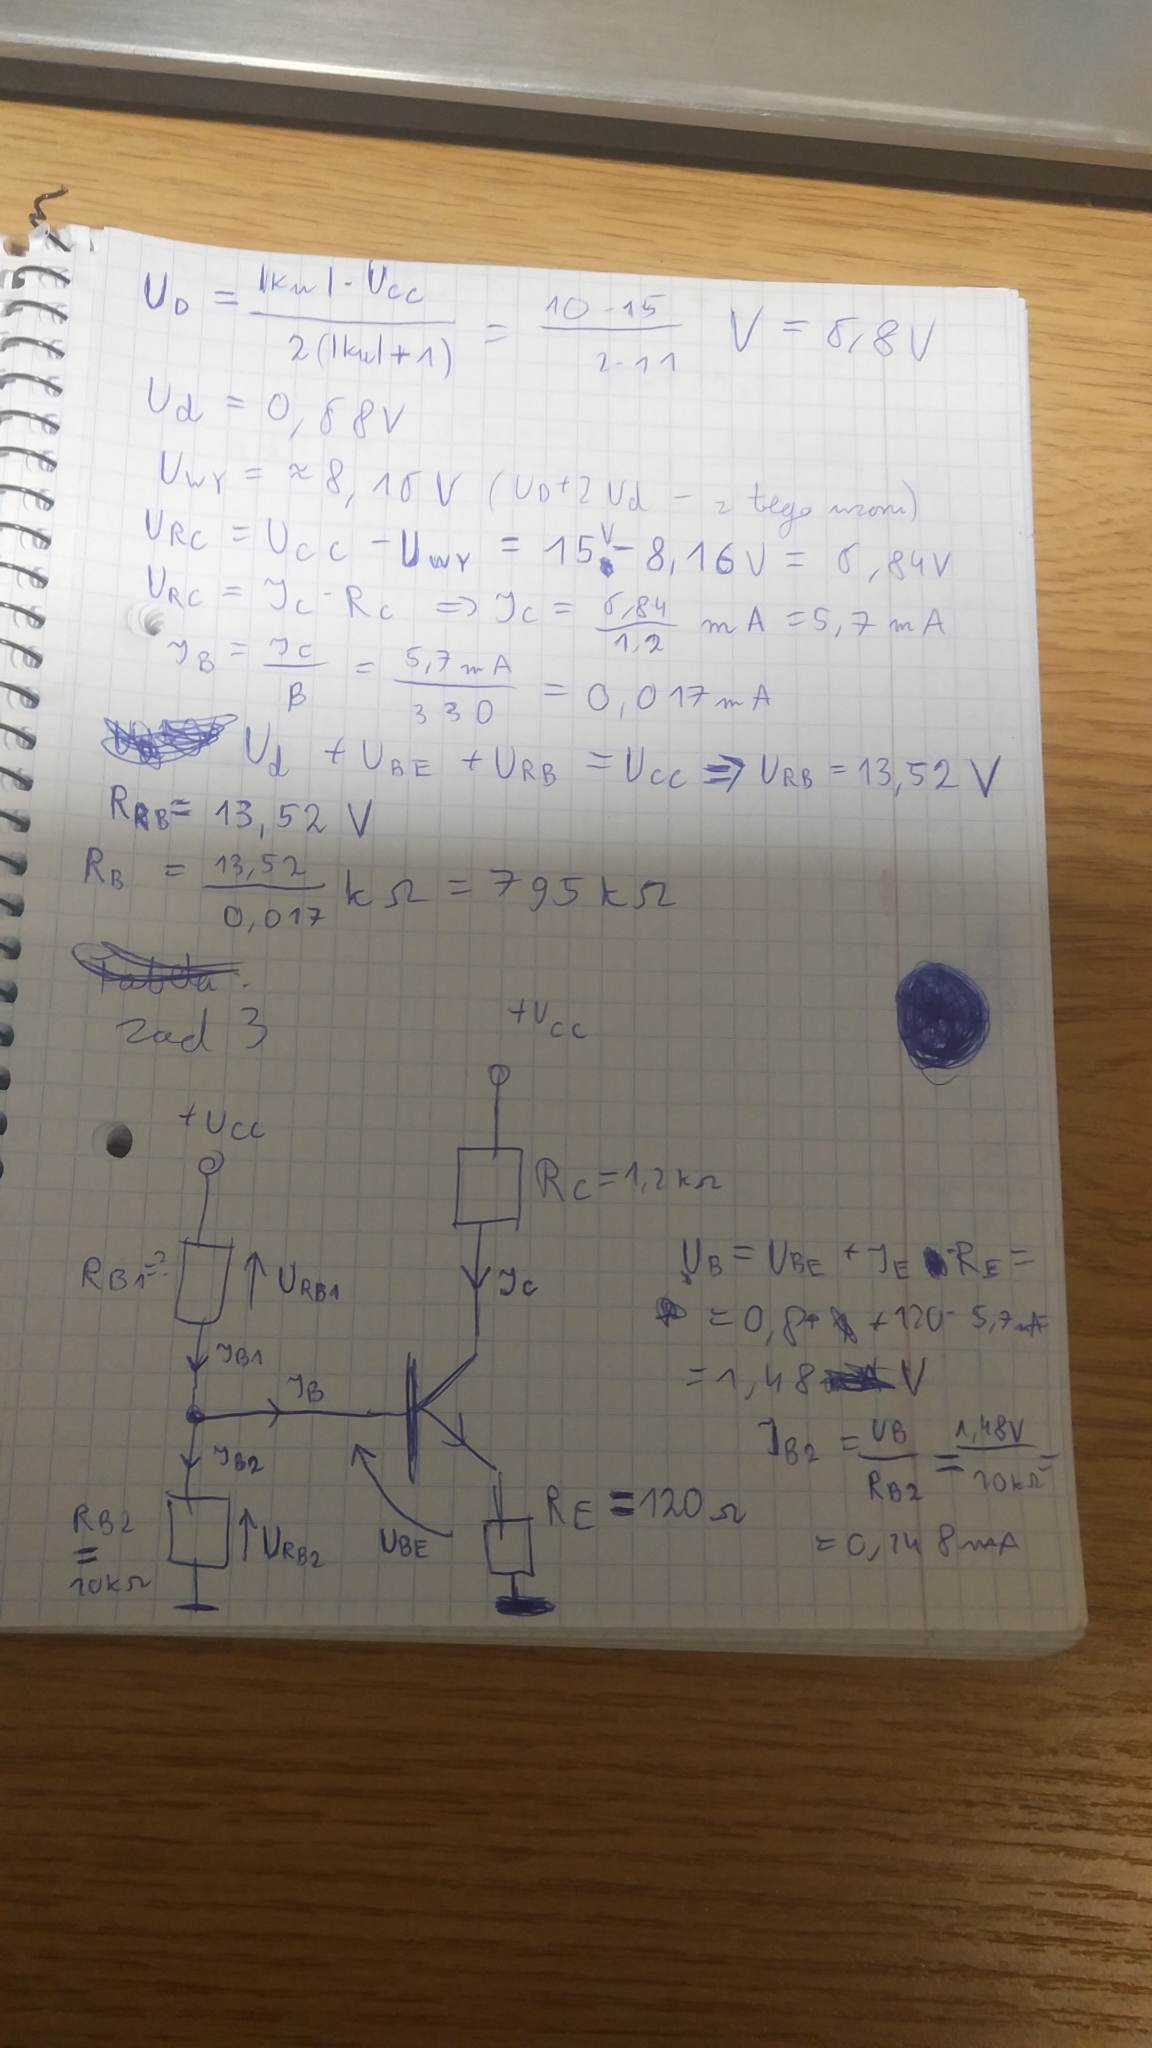 U_D = |ku|·Ucc / 2(|ku|+1) = 10·15 / 2·11 V = 6,8V
Ud = 0,68V
Uwy = ≈ 8,16V (UD+2Ud - z tego wzoru)
URC = UCC - Uwy = 15V - 8,16V = 6,84V
URC = IC·RC => IC = 6,84 / 1,2 mA = 5,7 mA
IB = IC / B = 5,7mA / 330 = 0,017mA
Ud + UBE + URB = UCC => URB = 13,52 V
RRB = 13,52 V
RB = 13,52 / 0,017 kΩ = 795 kΩ
zad 3
+UCC
+UCC
RC = 1,2kΩ
RB1 = ?
URB1
IC
IB1
IB
IB2
RB2
=
10kΩ
URB2
UBE
RE = 120Ω
UB = UBE + IE·RE =
= 0,8+ +120·5,7mA
= 1,48 V
IB2 = UB / RB2 = 1,48V / 10kΩ =
= 0,148mA